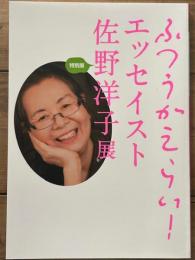 ふつうがえらい!
エッセイスト
佐野洋子展
特別展